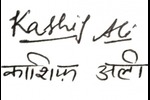 Kashif Ali
काशिफ़ अली